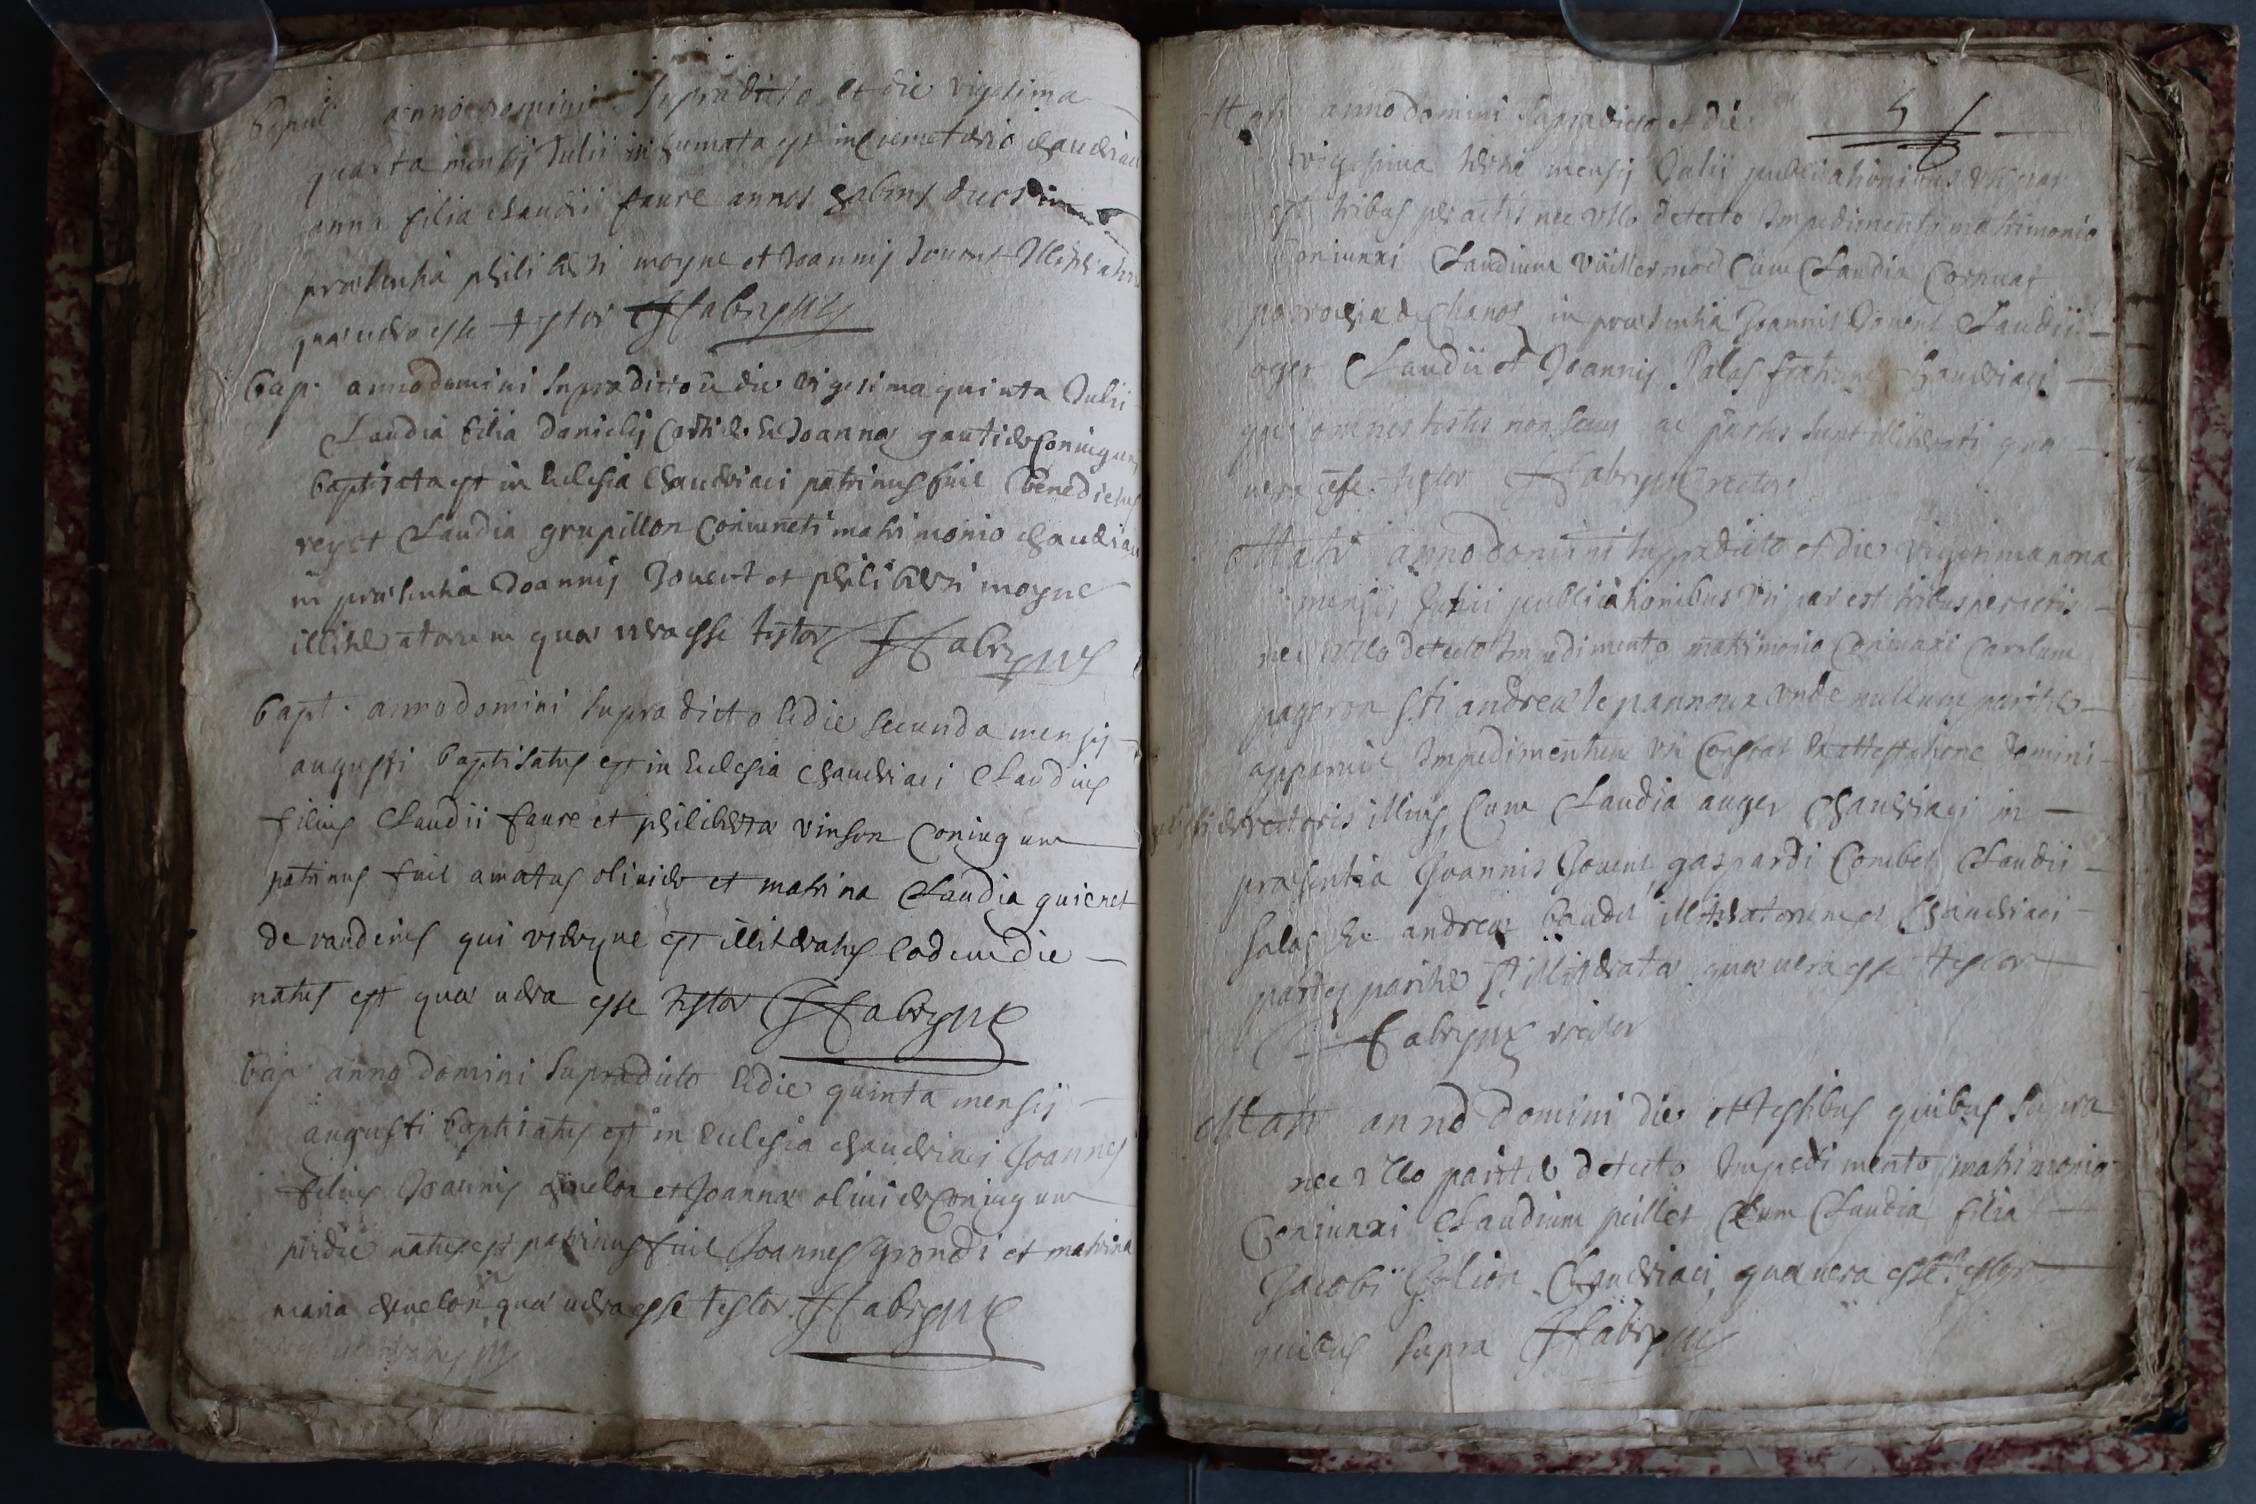 Sepul anno domini supradicto et die vigesima
quarta mensis Julii inhumata est in cemeterio chaudriaci
anna filia claudii faure annos habens duos
præsentia philiberti moyne et Joannis Jouent illitteratorum
quæ vera esse testor Fabrynus
bap. anno domini supradicto et die vigesima quinta Julii
Claudia filia danielis et Joannæ gautier coniugum
baptisata est in Ecclesia chaudriaci patrinus fuit Benedictus
rey et Claudia grupillon coniuncti matrimonio chaudriaci
in præsentia Joannis Jouent et philiberti moyne
illitteratorum quæ vera esse testor Fabrynus
bapt. anno domini supradicto et die secunda mensis
augusti baptisatus est in Ecclesia chaudriaci Claudius
filius Claudii faure et philibertæ vinson coniugum
patrinus fuit amatus oliuier et matrina Claudia guienet
de vaudenus qui uterque est illitteratus eodem die
natus est quæ vera esse testor Fabrynus
bap. anno domini supradicto et die quinta mensis
augusti baptisatus est in Ecclesia chaudriaci Joannes
filius Joannis et Joannæ oliuier coniugum
pridie natus est patrinus fuit Joannes grondi et matrina
maria quæ vera esse testor Fabrynus
anno domini supradicto et die
vigesima mensis Julii publicationibus uti par
est tribus peractis nec ullo detecto impedimento matrimonio
coniunxi Claudium vuillermod cum Claudia Cornuat
parochiæ de chanos in præsentia Joannis Jouent Claudii
oger Claudii et Joannis Salas fratrum chaudriaci
qui omnes testes non secus ac partes sunt illiterati quæ
vera esse testor Fabrynus rector
Matr anno domini supradicto et die vigesima nona
mensis Julii publicationibus uti par est tribus peractis
nec ullo detecto impedimento matrimonio coniunxi Carolum
pageron sti andreæ le pannoux unde nullum pariter
apparuit impedimentum uti constat ex attestatione domini
rectoris illius, cum Claudia auger chaudriaci in
præsentia Joannis Jouent, gaspardi Combet Claudii
salas et andreæ baudet illitteratorum et chaudriaci
partes pariter illitterata quæ vera esse testor
Fabrynus rector
Matr anno domini die et testibus quibus supra
nec ullo pariter detecto impedimento matrimonio
Coniunxi Claudium peillet cum Claudia filia
Jacobi Julion chaudriaci, quæ vera esse testor
quibus supra Fabrynus